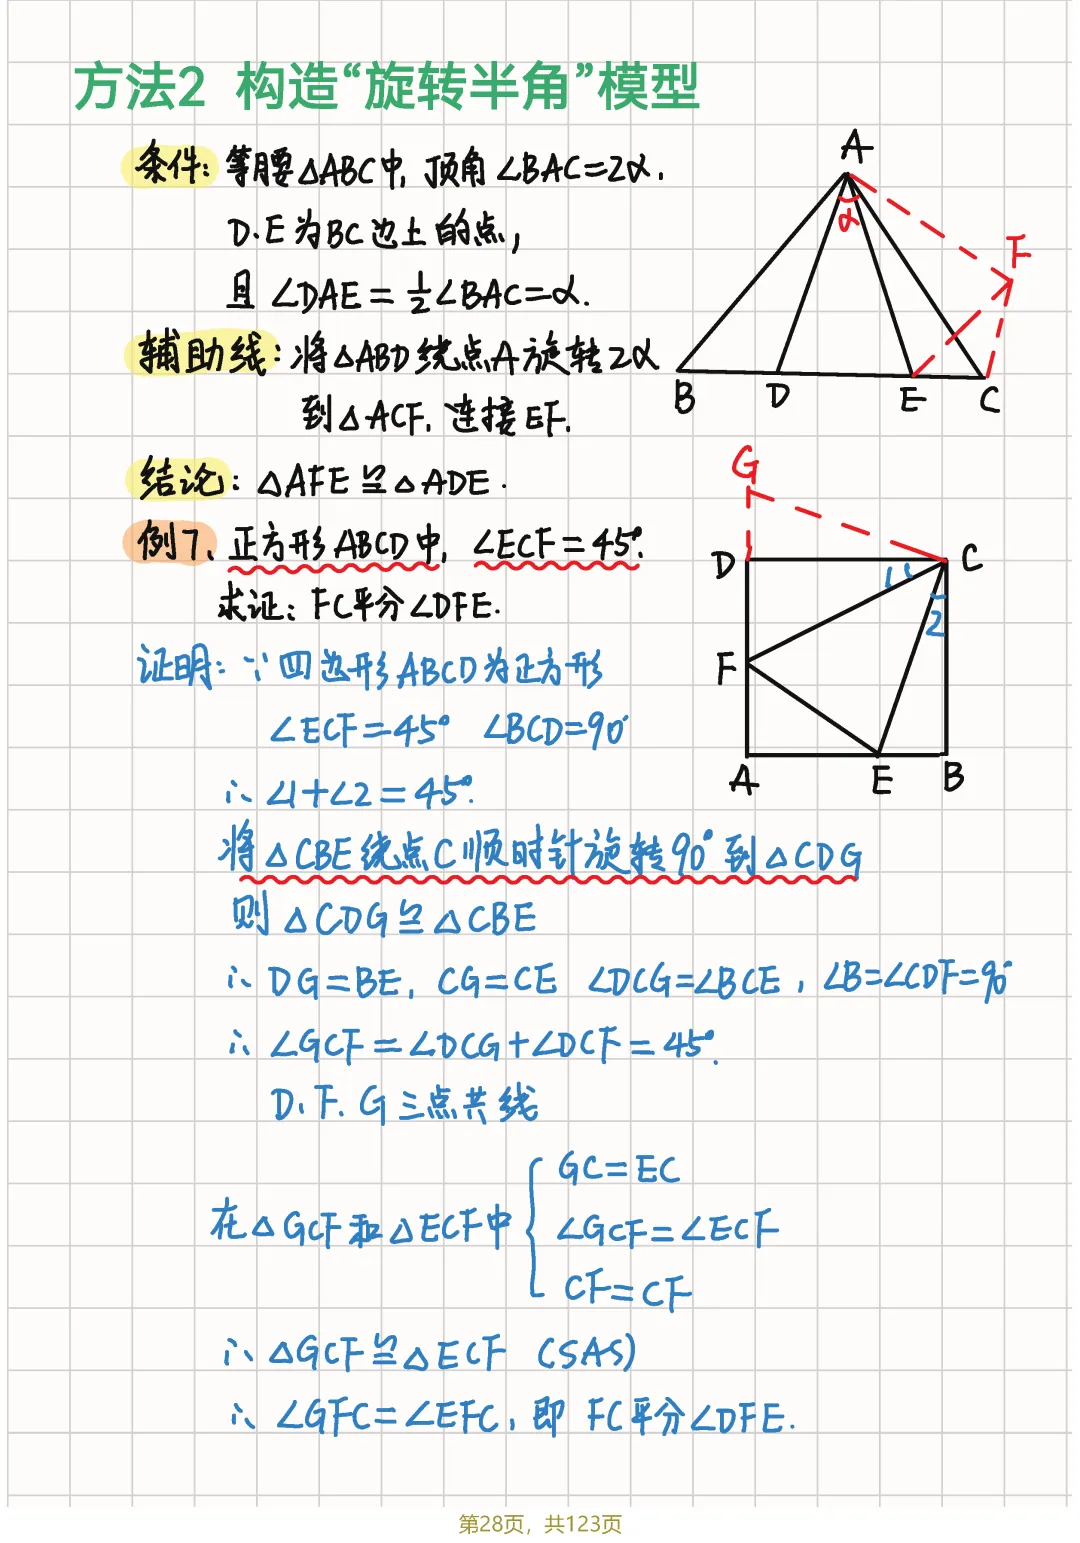 方法2 构造“旋转半角”模型
条件：等腰△ABC中, 顶角∠BAC=2α.
D.E为BC边上的点,
且 ∠DAE=½∠BAC=α.
辅助线：将△ABD绕点A旋转2α
到△ACF. 连接EF.
结论：△AFE≌△ADE.
A
α
F
B
D
E
C
例7、正方形ABCD中, ∠ECF=45°.
求证：FC平分∠DFE.
G
D
C
1
2
F
A
E
B
证明：∵四边形ABCD为正方形
∠ECF=45° ∠BCD=90°
∴∠1+∠2=45°.
将△CBE绕点C顺时针旋转90°到△CDG
则△CDG≌△CBE
∴DG=BE, CG=CE ∠DCG=∠BCE, ∠B=∠CDF=90°
∴∠GCF=∠DCG+∠DCF=45°.
D.F.G三点共线
在△GCF和△ECF中
GC=EC
∠GCF=∠ECF
CF=CF
∴△GCF≌△ECF (SAS)
∴∠GFC=∠EFC, 即 FC平分∠DFE.
第28页，共123页